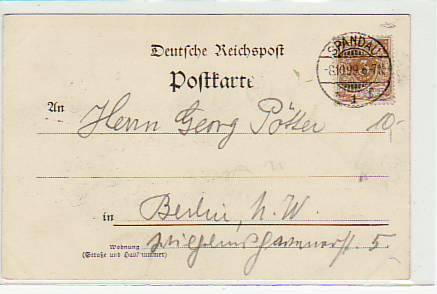 Deutsche Reichspost
Postkarte
SPANDAU
-8.10.99. 6-7N.
1 f
3
An
Herrn Georg Pötter
10,-
in Berlin, N. W.
Wohnung
(Straße und Hausnummer)
Wilhelmshavenerstr. 5.